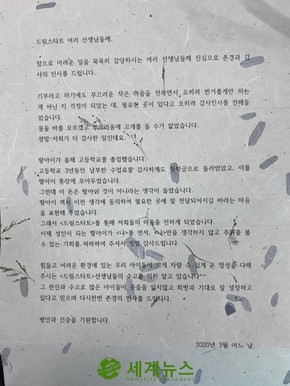 드림스타트 여러 선생님들께.
참으로 어려운 일을 묵묵히 감당하시는 여러 선생님들께 진심으로 존경과 감
사의 인사를 드립니다.
기부라고 하기에도 부끄러운 작은 마음을 전하면서, 오히려 번거롭게만 하는
게 아닌 지 걱정이 되었는 데, 필요한 곳이 있다고 오히려 감사인사를 선해들
었습니다.
몸둘 바를 모르겠고 부끄러움에 고개를 들 수가 없었습니다.
정말 저희가 더 감사한 일인데요.
딸아이가 올해 고등학교를 졸업했습니다.
고등학교 3년동안 납부한 수업료를 감사하게도 장학금으로 돌려받았고, 이를
딸아이 통장에 모아두었습니다.
그런데 이 돈은 딸아이 것이 아니라는 생각이 들었습니다.
딸아이 역시 이런 생각에 동의하여 필요한 곳에 잘 전달되어지길 바라는 마음
을 표현해 주었습니다.
그래서 <드림스타트>를 통해 저희들의 마음을 전하게 되었습니다.
이제 성인이 되는 딸아이가 <나>를 먼저, <나>만을 생각하지않고 주위를 볼
수 있는 기회를, 허락하여 주셔서 정말 감사드립니다.
힘들고 어려운 환경에 있는 우리 아이들이 밝게 자랄 수 있게 온 정성을 다해
주시는 <드림스타트>선생님들의 수고를 익히 알고 있습니다^^
그 헌신과 수고로 많은 아이들이 웃음을 잃지않고 희망과 기대로 잘 성장하고
있다고 믿으며 다시한번 존경의 인사를 드립니다.
평안과 건승을 기원합니다.
2020년 3월 어느 날
세계뉴스